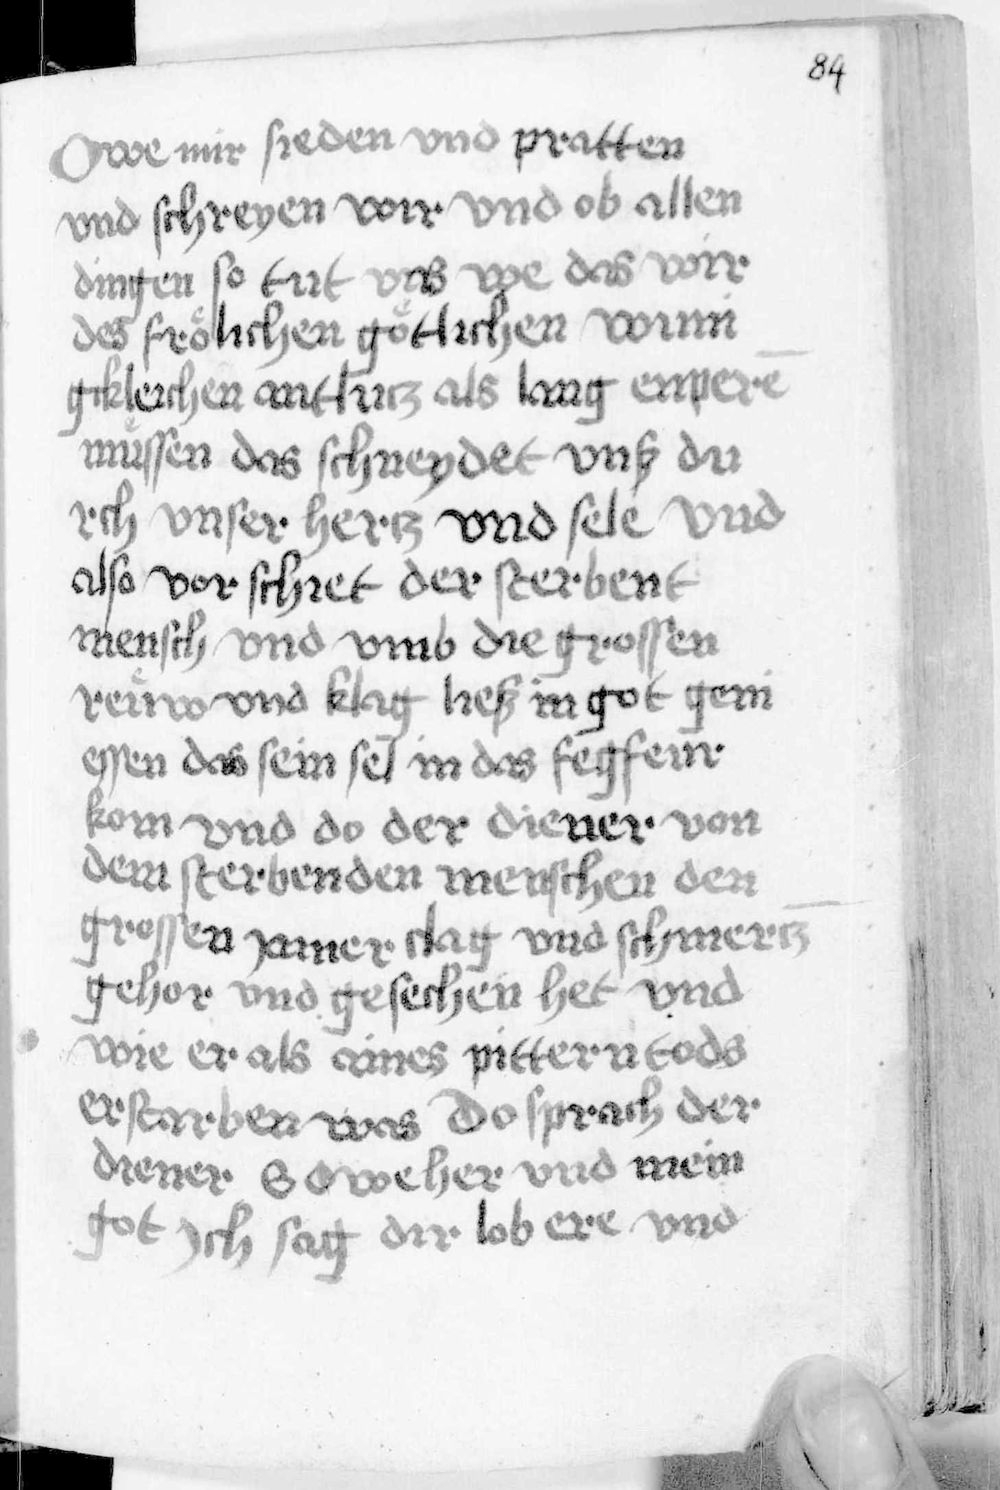 84
Owe mir sieden vnd pratten
vnd schreyen wir vnd ob allen
dingen so tut vns we das wir
des frölichen götlichen winni
gcklerchen antlutz als lang enperē
müssen das schneydet vnß du
rch vnser hertz vnd sele vnd
also vor schiet der sterbent
mensch vnd vmb die grossen
reüw vnd klag ließ in got geni
essen das sein sel in das fegfeur
kom vnd do der diener von
dem sterbenden menschen den
grossen Jamer clag vnd schmertz
gehor vnd gesechen het vnd
wie er als aines pittern tods
erstarben was Do sprach der
diener S O we her vnd mein
got Ich sag dir lob ere vnd